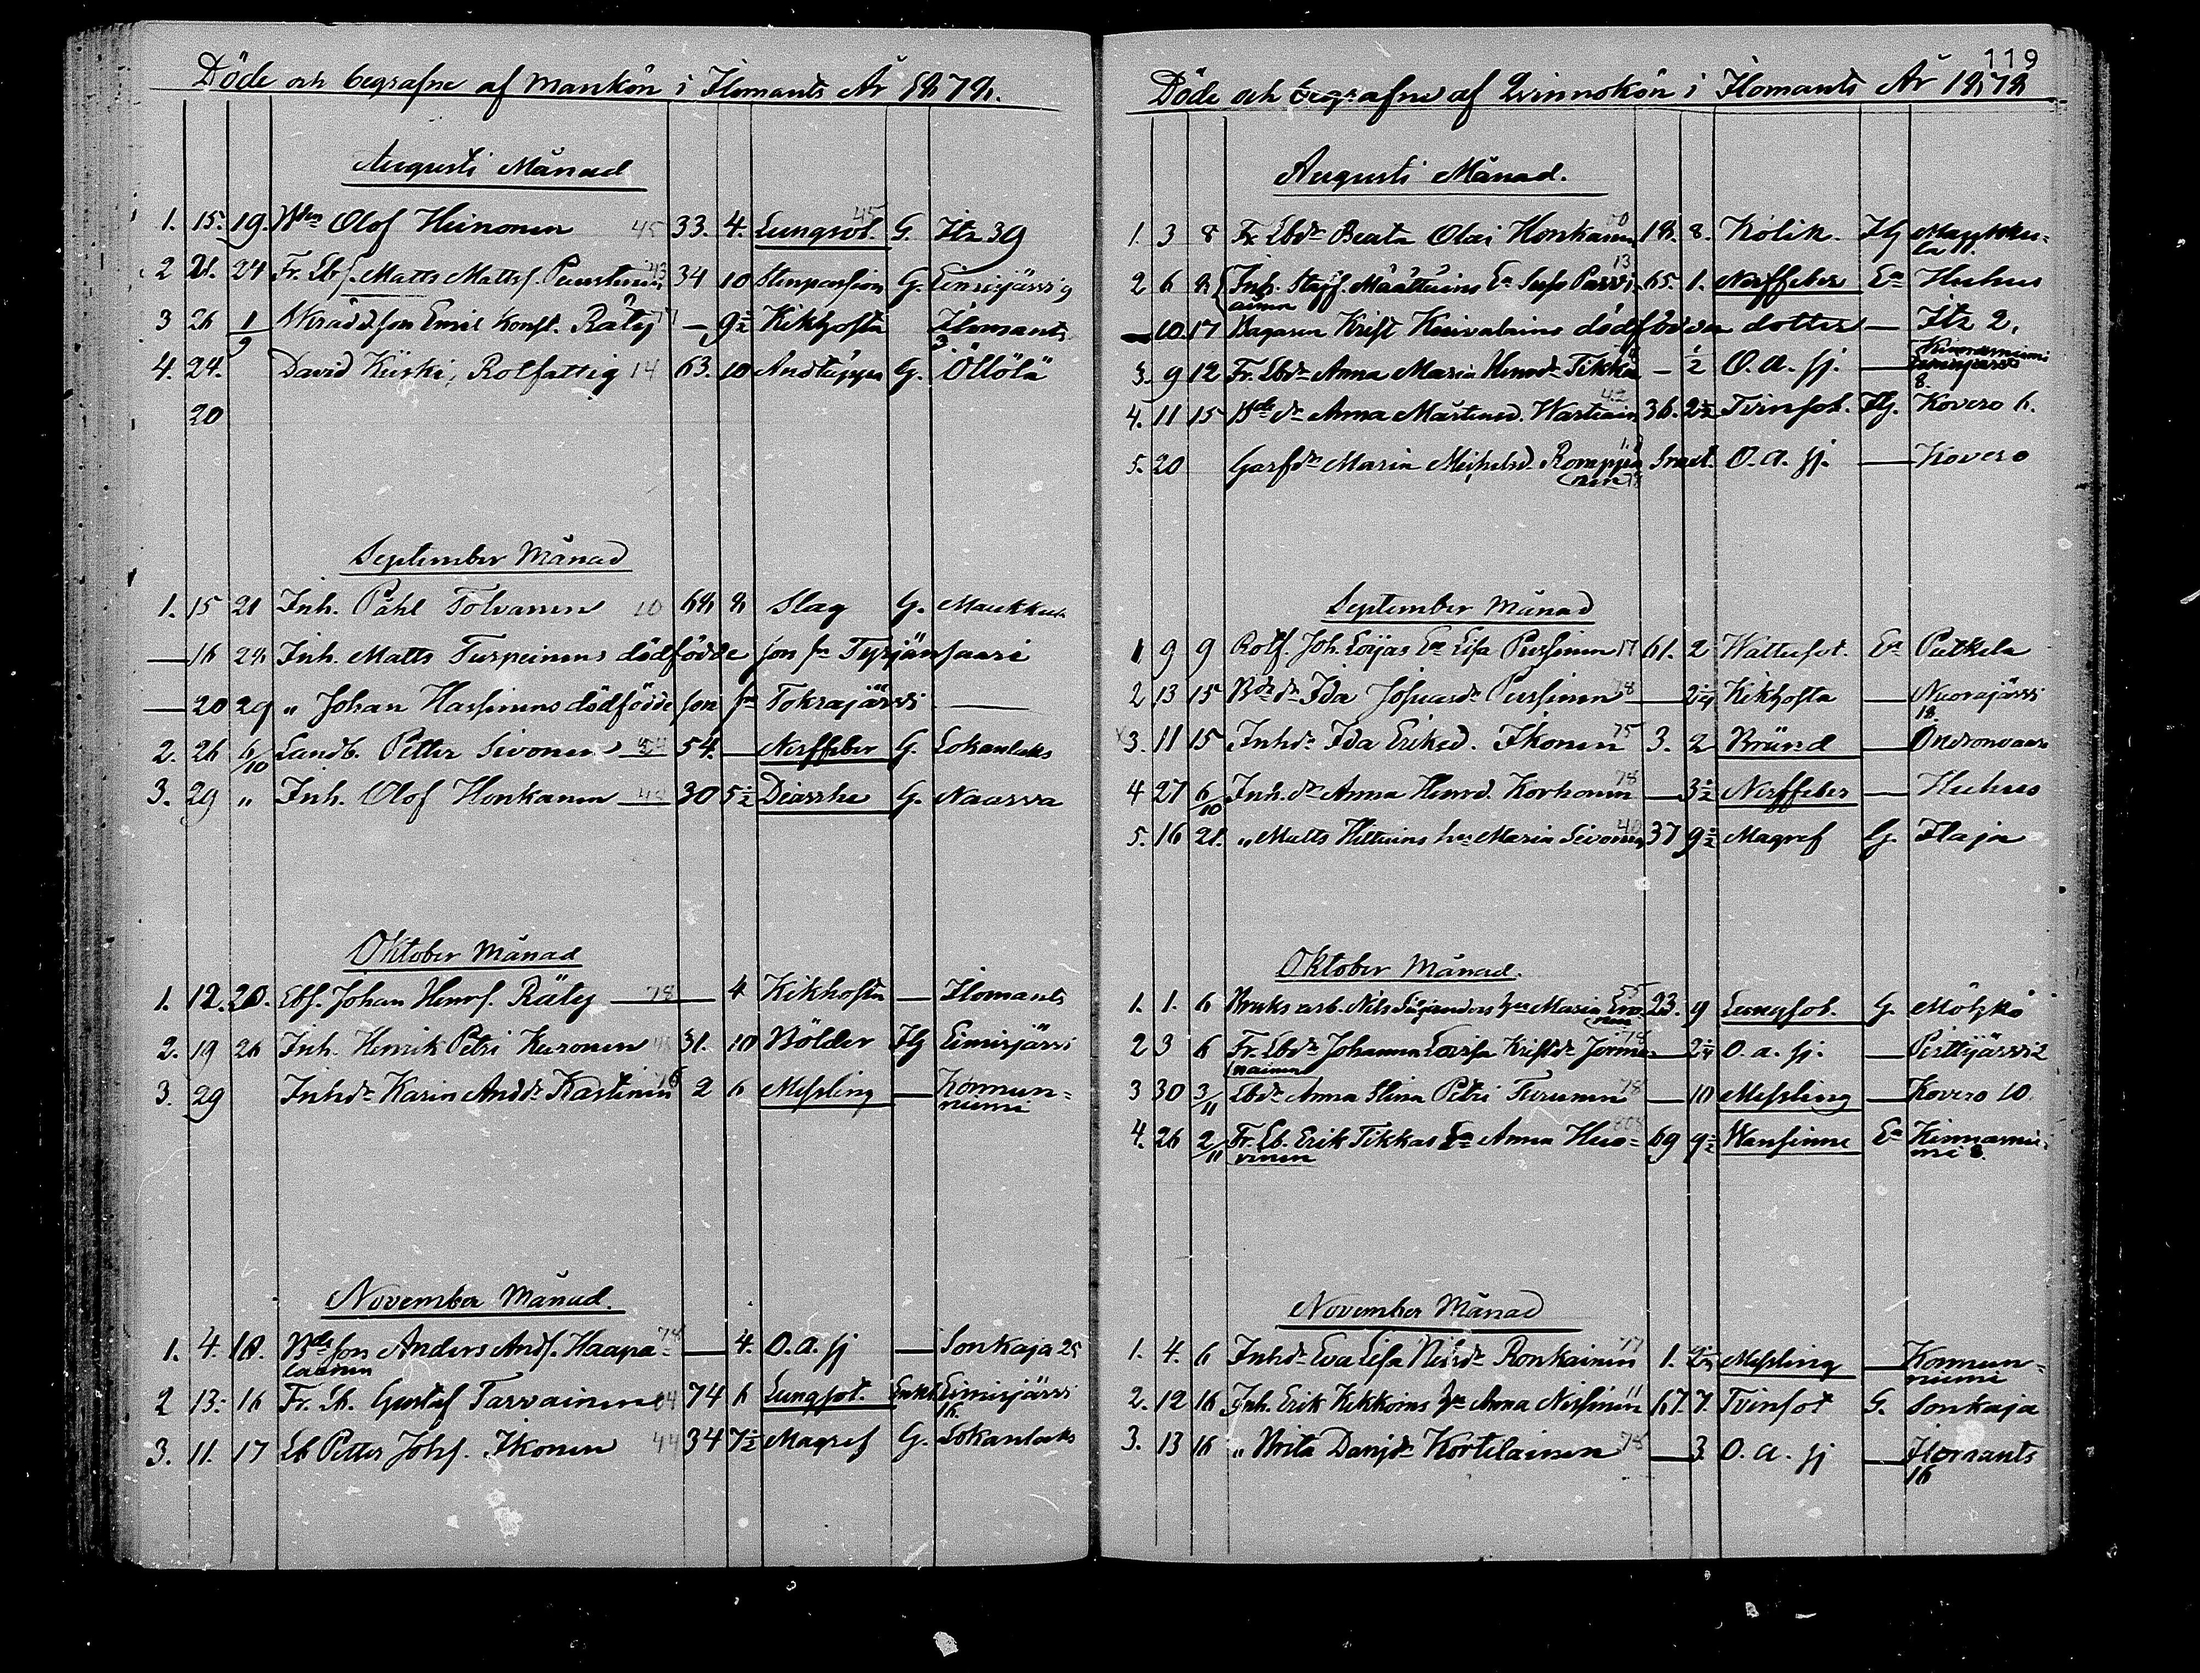 Döde och begrafne af mankön i Ilomants År 1878.
Augusti Månad
1. 15. 19. Bden Olof Heinonen 45 33. 4. Lungsot. 45 G. Itz 39
2 21. 24 Fr. Lbs. Matts Mattss. Puustinen 43 34 10 Stenpassion G. Eimisjärvi
3 26 1/9 Skrädd. son Emil Konst. Räty 77 — 9½ Kikhosta Ilomants 3
4. 24. David Kiiski, Rotfattig 14 63. 10 Andtäppa G. Öllölä
20
September Månad
1. 15 21 Inh. Påhl Tolvanen 10 68 8 Slag G. Maukkula
— 16 28 Inh. Matts Turpeinens dödfödde son fr Tyrjänsaari
— 20 29 „ Johan Hassinens dödfödde son frn Tokrajärvi —
2. 26 6/10 Landb. Petter Sivonen 24 54. — Nerffeber G. Lokanlaks
3. 29 „ Inh. Olof Honkanen 48 30 5½ Diarrhe G. Naarva
Oktober Månad
1. 12. 20. Lbs. Johan Henrs. Räty 78 — 4 Kikhosta — Ilomants
2. 19 26 Inh. Henrik Petri Kuronen 31. 10 Bölder Hg Eimisjärvi
3. 29 Inhdr Karin Andr Kastinen 76 2 6 Messling — Könnunniemi
November Månad
1. 4. 10. Bde son Anders Ands. Haapalainen 78 — 4. O. a. sj — Sonkaja 25
2 13. 16 Fr. Lb. Gustaf Tarvainen 04 74 6 Lungsot. Enkl. Eimisjärvi 16.
3. 11. 17 Lb Petter Johs. Ikonen 44 34 7½ Magref G. Lokanlaks
119
Döde och begrafne af Qvinnokön i Ilomants År 1878
Augusti Månad.
1. 3 8 Fr. Lbdr Beata Olai Honkanen 60 18. 8. Kolik. Hg Maukkula 11.
2 6 8 Inh. Staff. Määttäins Ea Sofs Parviainen 13 65. 1. Nerffeber Ea Huhus
— 10. 17 Bagaren Krist Kuivalains dödfödda dotter — Itz 2.
3. 9 12 Fr. Lbdr Anna Maria Henrdr Tikka — ½ O. a. sj. — Kinnasniemi 8
4. 11 15 Bde dr Anna Mårtensd. Wartiain 42 36. 2½ Tvinsot. Hg. Kovero 6.
5. 20 Garfdr Maria Michelsd. Romppanen 78 O. a. sj. — Kovero
September Månad
1 9 9 Rotf. Joh. Löijas Ea Lisa Pursinen 17 61. 2 Wattusot. Ea Putkela
2 13 15 Bde dr Ida Josuasdr Pursinen 78 — 2¼ Kikhosta — Nuorajärvi 18.
x3. 11 15 Inhdr Ida Eriksd. Ikonen 75 3. 2 Bränd — Ondronvaara
4 27 6/10 Inh. dr Anna Henrd. Korhonen 78 — 3½ Nerffeber — Huhus
5. 16 21. „ Matts Hiltuins hu Maria Sivonen 40 37 9½ Magref G. Ilaja
Oktober Månad.
1. 1. 6 Bruks arb. Nils hu Maria Eronen 55 23. 9 Lungsot. G. Möhkö
2 3 6 Fr. Lbdr Johanna Lovisa Kristdr Jormanainen 78 — 2¼ O. a. sj. — Perttijärvi 2
3 30 3/11 Lbdr Anna Stina Petri Turunen 78 — 10 Messling — Kovero 10.
4. 26 2/11 Fr. Lb. Erik Tikkas Ea Anna Huovinen 808 69 9½ Wansinne Ea Kinnasniemi 8.
November Månad
1. 4. 6 Inhdr Eva Lisa Nilsdr Ronkainen 77 1. 2½ Messling — Konnunniemi
2. 12 16 Inh. Erik Kekkoins hu Anna Nissinen 11 67. 7. Tvinsot G. Sonkaja
3. 13 16 „ Brita Danjdr Kortelainen 78 — 3. O. a. sj — Ilomants 16